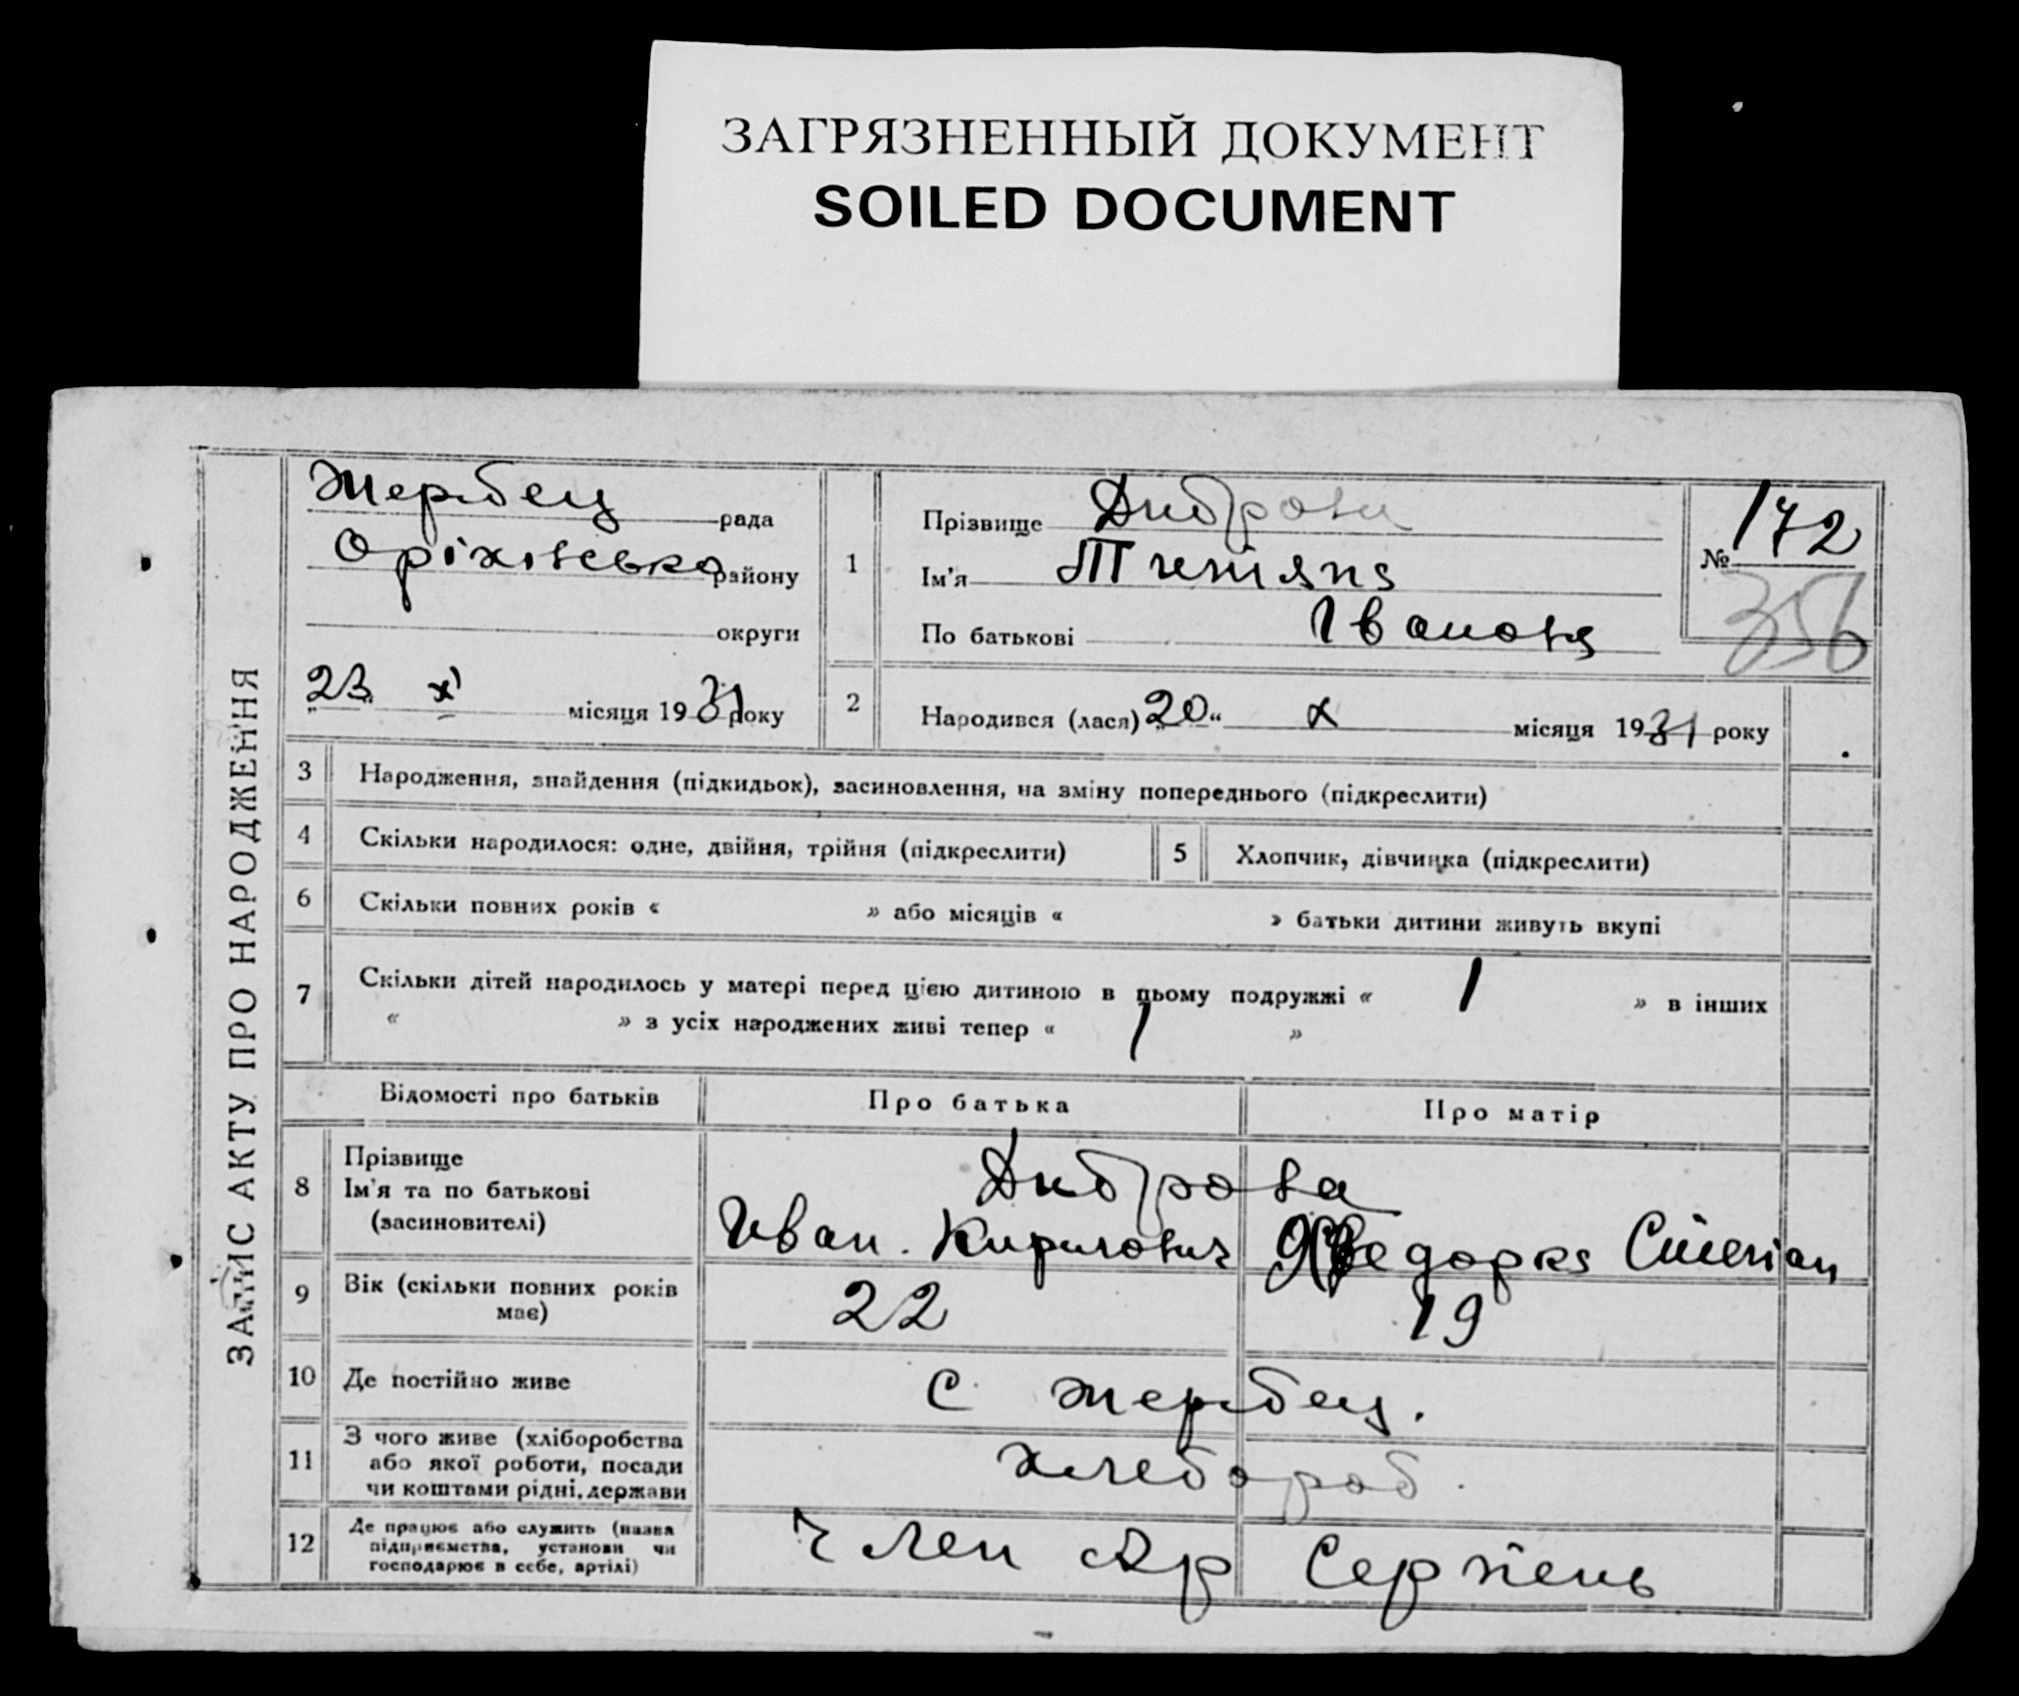 ЗАГРЯЗНЕННЫЙ ДОКУМЕНТ
SOILED DOCUMENT
ЗАПИС АКТУ ПРО НАРОДЖЕННЯ
Жеребец рада
Оріхівсько району
округи
23 XI місяця 1931 року
1
Прізвище Диброва
Ім'я Тетіяна
По батькові Іванова
№ 172
356
2 Народився (лася) „20“ X місяця 1931 року
3 Народження, знайдення (підкидьок), засиновлення, на зміну попереднього (підкреслити)
4 Скільки народилося: одне, двійня, трійня (підкреслити) 5 Хлопчик, дівчинка (підкреслити)
6 Скільки повних років « » або місяців « » батьки дитини живуть вкупі
7 Скільки дітей народилось у матері перед цією дитиною в цьому подружжі « 1 » в інших
« » з усіх народжених живі тепер « 1 »
Відомості про батьків Про батька Про матір
8 Прізвище
Ім'я та по батькові
(засиновителі)
Диброва
Иван. Кирилович Федорка Степан
9 Вік (скільки повних років
має)
22 19
10 Де постійно живе с. Жеребец.
11 З чого живе (хліборобства
або якої роботи, посади
чи коштами рідні, держави
хлебороб.
12 Де працює або служить (назва
підприємства, установи чи
господарює в себе, артілі)
Член Ар Серпень